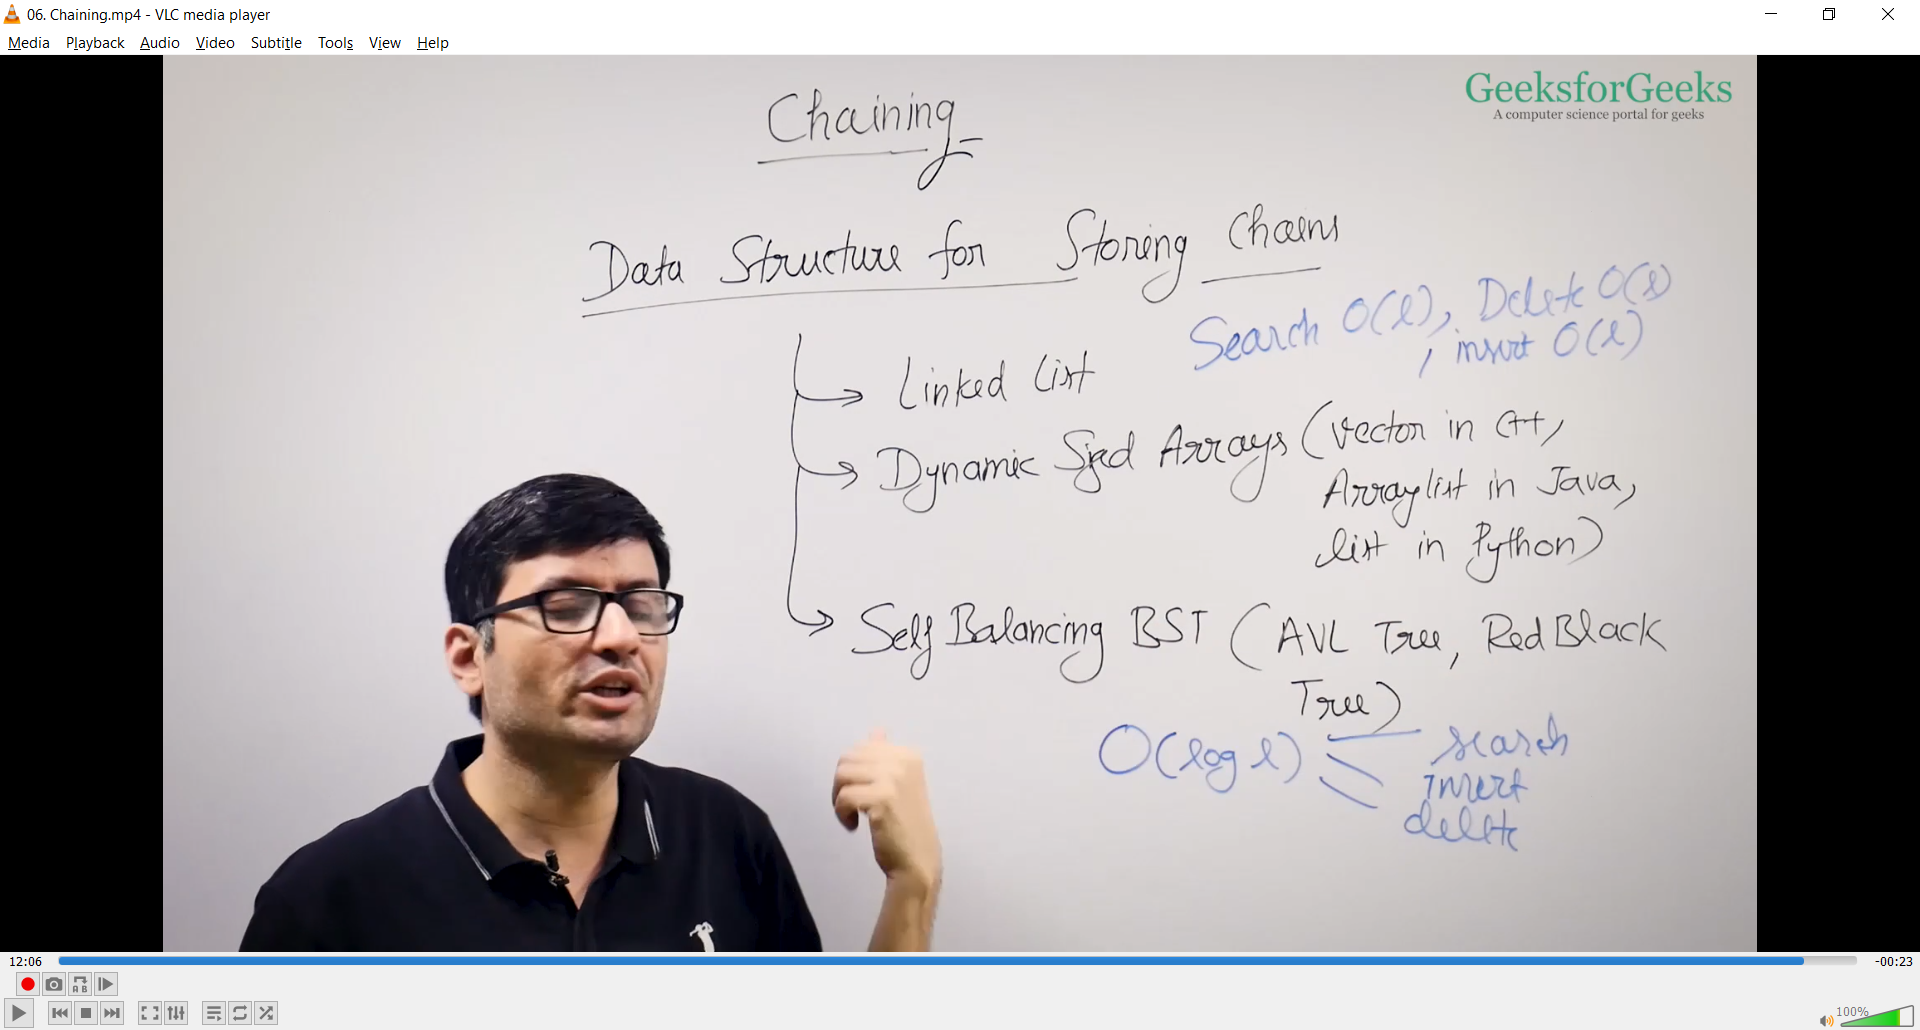 06. Chaining.mp4 - VLC media player
Media Playback Audio Video Subtitle Tools View Help
GeeksforGeeks
A computer science portal for geeks
Chaining
Data Structure for Storing Chains
Search O(l), Delete O(l)
, insert O(l)
Linked List
Dynamic Sized Arrays (Vector in C++,
ArrayList in Java,
list in Python)
Self Balancing BST (AVL Tree, Red Black
Tree)
O(log l) search
insert
delete
12:06 -00:23
A B
100%